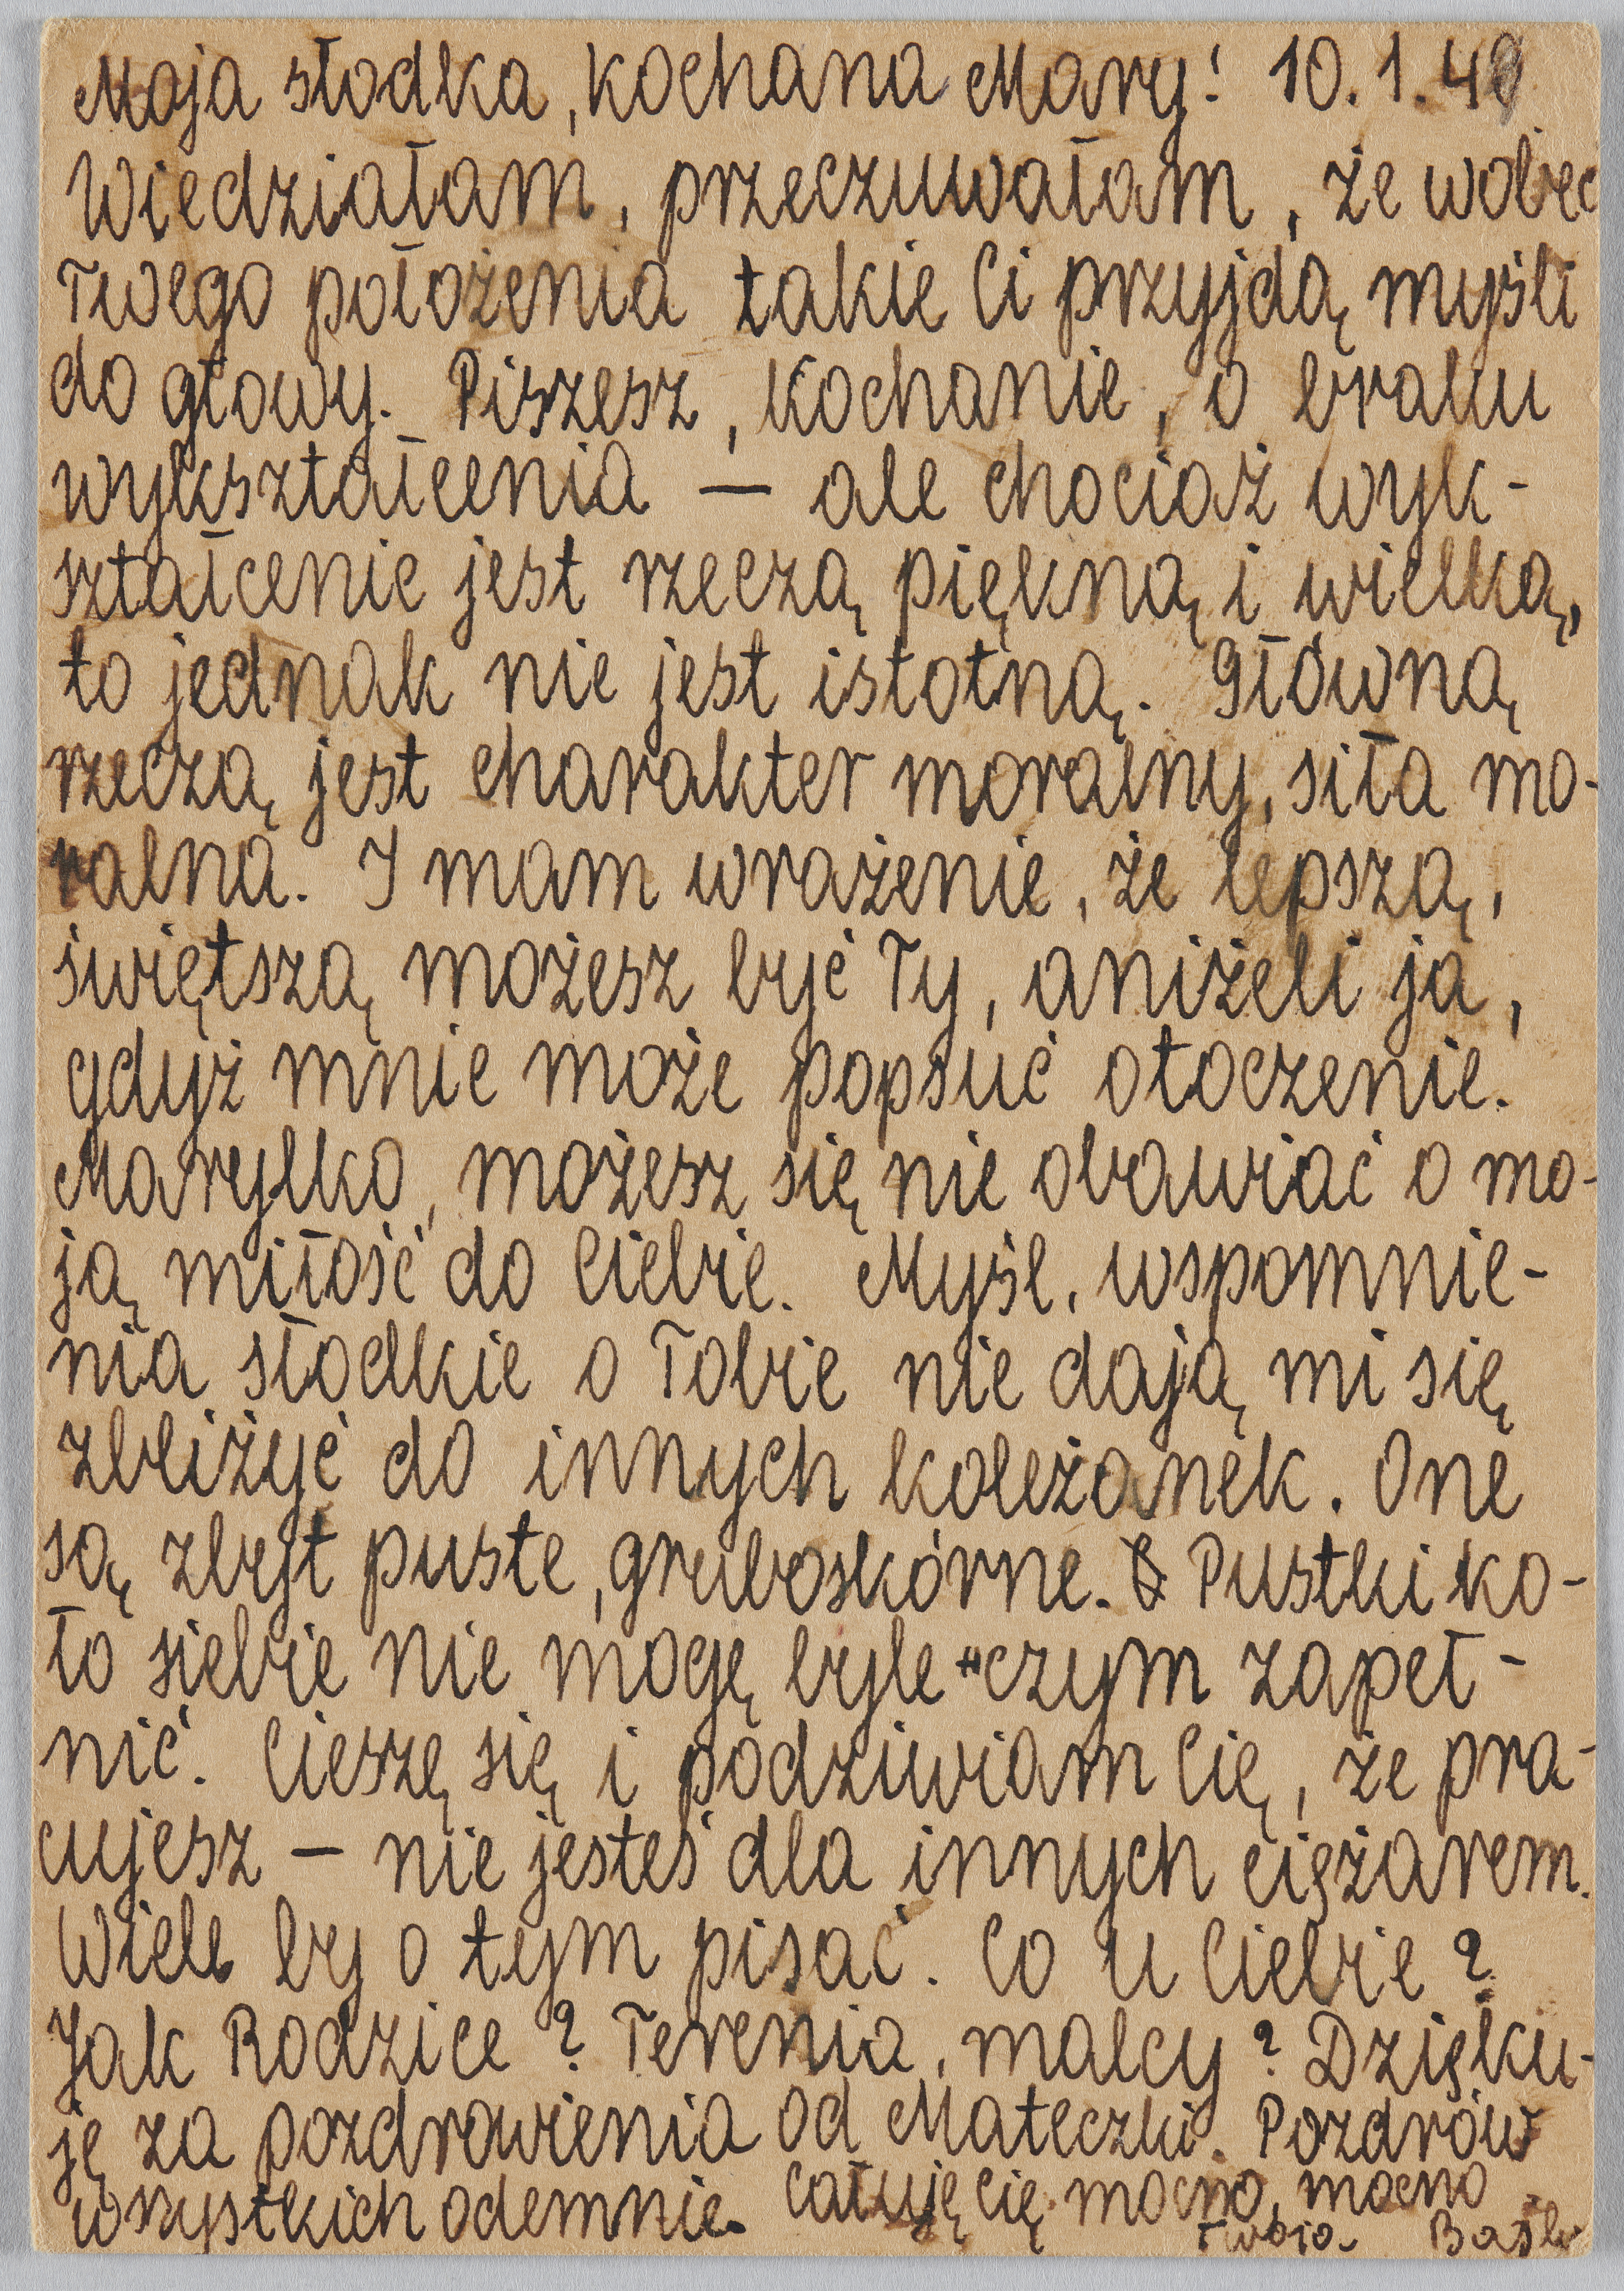 Moja słodka, kochana Mary! 10.1.48
Wiedziałam, przeczuwałam, że wobec
Twego położenia takie Ci przyjdą myśli
do głowy. Piszesz, kochanie, o braku
wykształcenia — ale chociaż wyk-
ształcenie jest rzeczą piękną i wielką,
to jednak nie jest istotną. Główną
rzeczą jest charakter moralny, siła mo-
ralna. I mam wrażenie, że lepszą,
świętszą możesz być Ty, aniżeli ja,
gdyż mnie może popsuć otoczenie.
Marylko, możesz się nie obawiać o mo-
ją miłość do Ciebie. Myśl, wspomnie-
nia słodkie o Tobie nie dają mi się
zbliżyć do innych koleżanek. One
są zbyt puste, gruboskórne. Pustki ko-
ło siebie nie mogę byle-czym zapeł-
nić. Cieszę się i podziwiam Cię, że pra-
cujesz — nie jesteś dla innych ciężarem.
Wiele by o tym pisać. Co u Ciebie?
Jak Rodzice? Terenia, malcy? Dzięku-
ję za pozdrowienia od Mateczki. Pozdrów
wszystkich odemnie. Całuję Cię mocno, mocno
Twoja Baśka